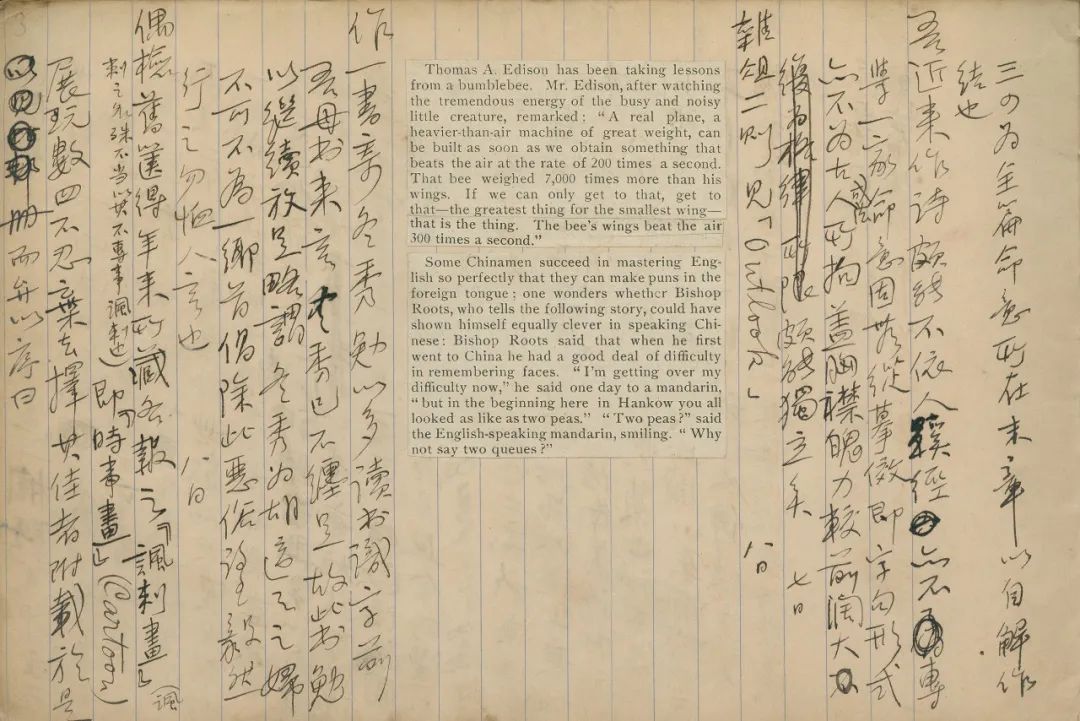 三四為全篇命意所在末章以自解作
結也
吾近來作詩頗能不依人蹊徑亦不專
學一家命意固無從摹倣即字句形式
亦不為古人成法所拘蓋胸襟魄力較前闊大
頗能獨立矣 七日
雜俎二則見「Outlook」 八日
Thomas A. Edison has been taking lessons
from a bumblebee. Mr. Edison, after watching
the tremendous energy of the busy and noisy
little creature, remarked: “A real plane, a
heavier-than-air machine of great weight, can
be built as soon as we obtain something that
beats the air at the rate of 200 times a second.
That bee weighed 7,000 times more than his
wings. If we can only get to that, get to
that—the greatest thing for the smallest wing—
that is the thing. The bee's wings beat the air
300 times a second.”
Some Chinamen succeed in mastering Eng-
lish so perfectly that they can make puns in the
foreign tongue; one wonders whether Bishop
Roots, who tells the following story, could have
shown himself equally clever in speaking Chi-
nese: Bishop Roots said that when he first
went to China he had a good deal of difficulty
in remembering faces. “I'm getting over my
difficulty now,” he said one day to a mandarin,
“but in the beginning here in Hankow you all
looked as like as two peas.” “Two peas?” said
the English-speaking mandarin, smiling. “Why
not say two queues?”
作一書寄冬秀勉以多讀書識字前
吾母書來言冬秀已不纏足故此書勉
以繼續放足略謂冬秀為胡適之之婦
不可不為一鄉首倡除此惡俗望毅然
行之勿恤人言也 八日
偶檢舊篋得年來所藏各報之「諷刺畫」(諷
刺二字殊不當以其不專事諷刺也)即「時事畫」(Cartoon)
展玩數四不忍棄去擇其佳者附載於是
冊而弁以序曰